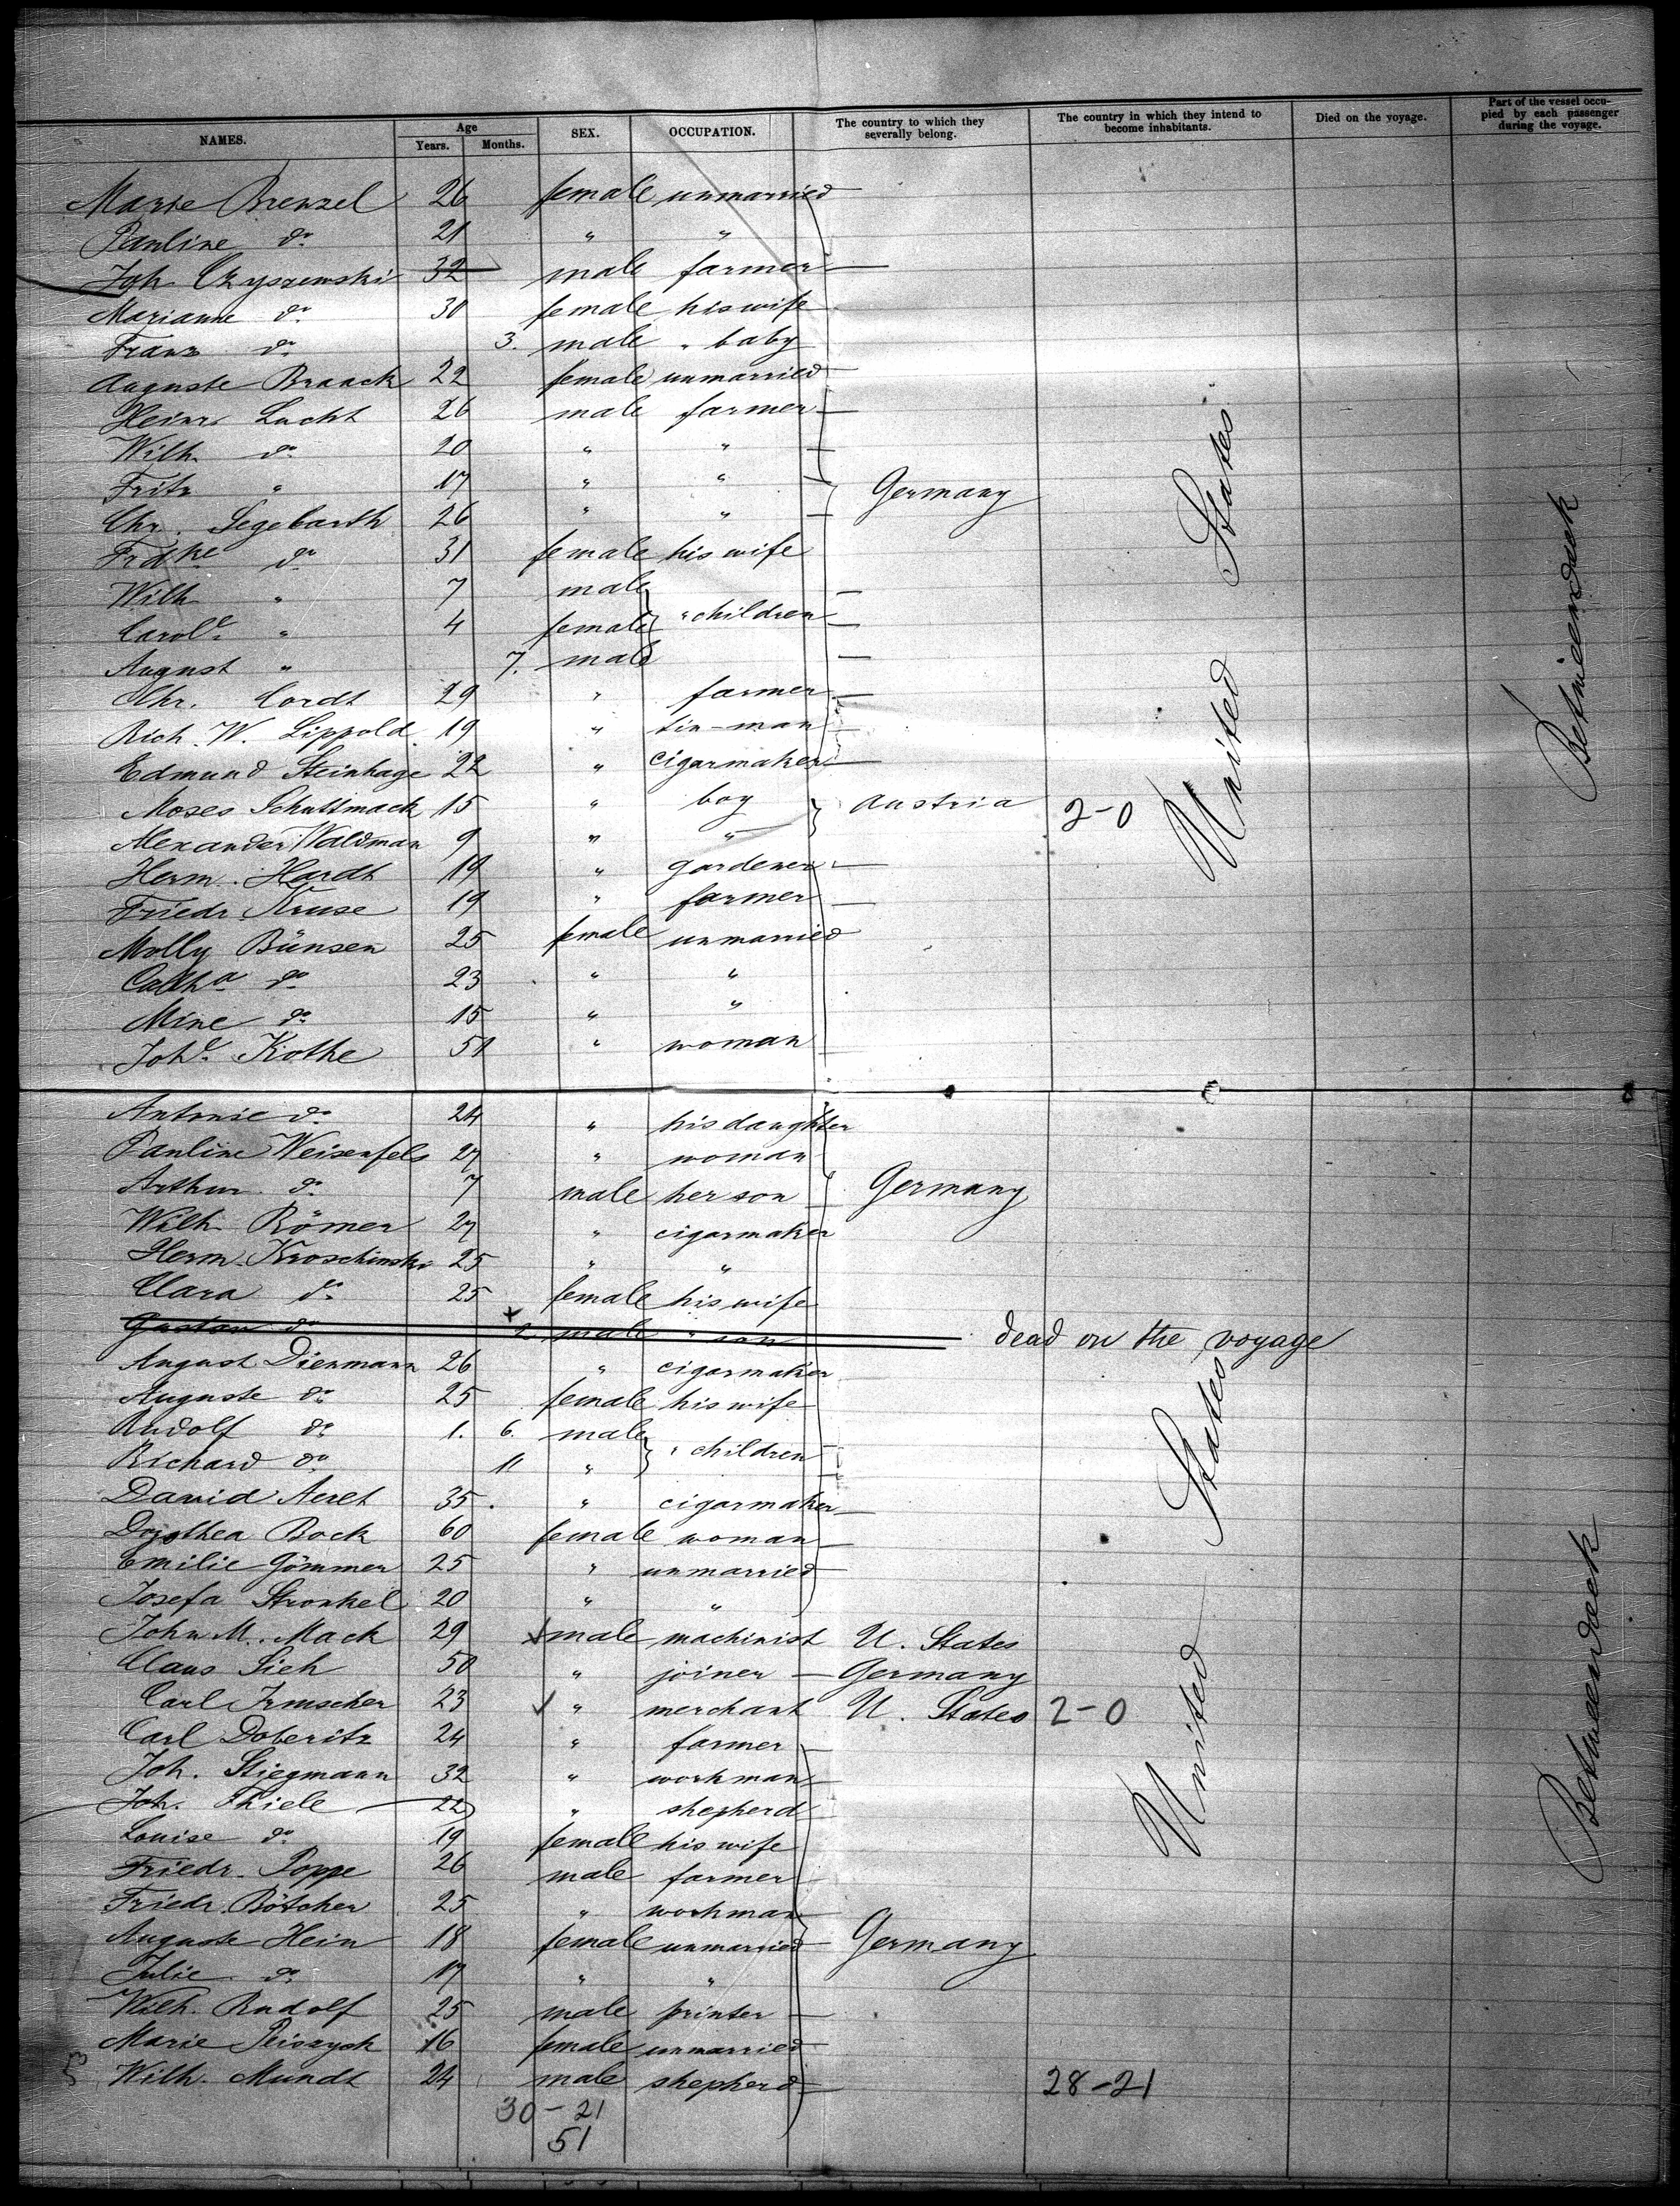 NAMES. Age Years. Months. SEX. OCCUPATION. The country to which they severally belong. The country in which they intend to become inhabitants. Died on the voyage. Part of the vessel occupied by each passenger during the voyage.
Marie Brenzel 26 female unmarried
Pauline do 21 " "
Joh. Chyszewski 32 male farmer
Marianne do 30 female his wife
Franz do 3. male " baby
Auguste Braack 22 female unmarried
Heinr. Lucht 26 male farmer
Wilh. do 20 " "
Fritz " 17 " " Germany
Chr. Segebarth 26 " "
Frdke do 31 female his wife
Wilh. " 7 male
Carole " 4 female " children
August " 7. male
Chr. Cordt 29 " farmer
Rich. W. Lippold 19 " tin-man
Edmund Steinhage 22 " cigarmaker
Moses Schattmack 15 " boy Austria 2-0
Alexander Waldman 9 " "
Herm. Hardt 19 " gardener
Friedr. Kruse 19 " farmer
Molly Bünsen 25 female unmarried
Catha do 23 " "
Mine do 15 " "
Johe Kothe 51 " woman
United States
Betweendeck
Antonie do 24 " his daughter
Pauline Weisenfels 27 " woman
Arthur do 7 male her son Germany
Wilh. Römer 27 " cigarmaker
Herm. Kroschinski 25 " "
Clara do 25 female his wife
Gustav do 2 male " son dead on the voyage
August Diermann 26 " cigarmaker
Auguste do 25 female his wife
Rudolf do 1. 6. male
Richard do 11 " " children
David Aeret 35. " cigarmaker
Dorothea Bock 60 female woman
Emilie Gömmer 25 " unmarried
Josefa Stronkel 20 " "
John M. Mack 29 male machinist U. States
Claus Sieh 50 " joiner Germany
Carl Irmscher 23 " merchant U. States 2-0
Carl Doberitz 24 " farmer
Joh. Stiegmann 32 " workman
Joh. Thiele 22 " shepherd
Louise do 19 female his wife
Friedr. Poppe 26 male farmer
Friedr. Bötcher 25 " workman
Auguste Hein 18 female unmarried Germany
Julie do 17 " "
Wilh. Rudolf 25 male printer
Marie 16 female unmarried
Wilh. Mundt 24 male shepherd 28-21
30-21
51
United States
Betweendeck